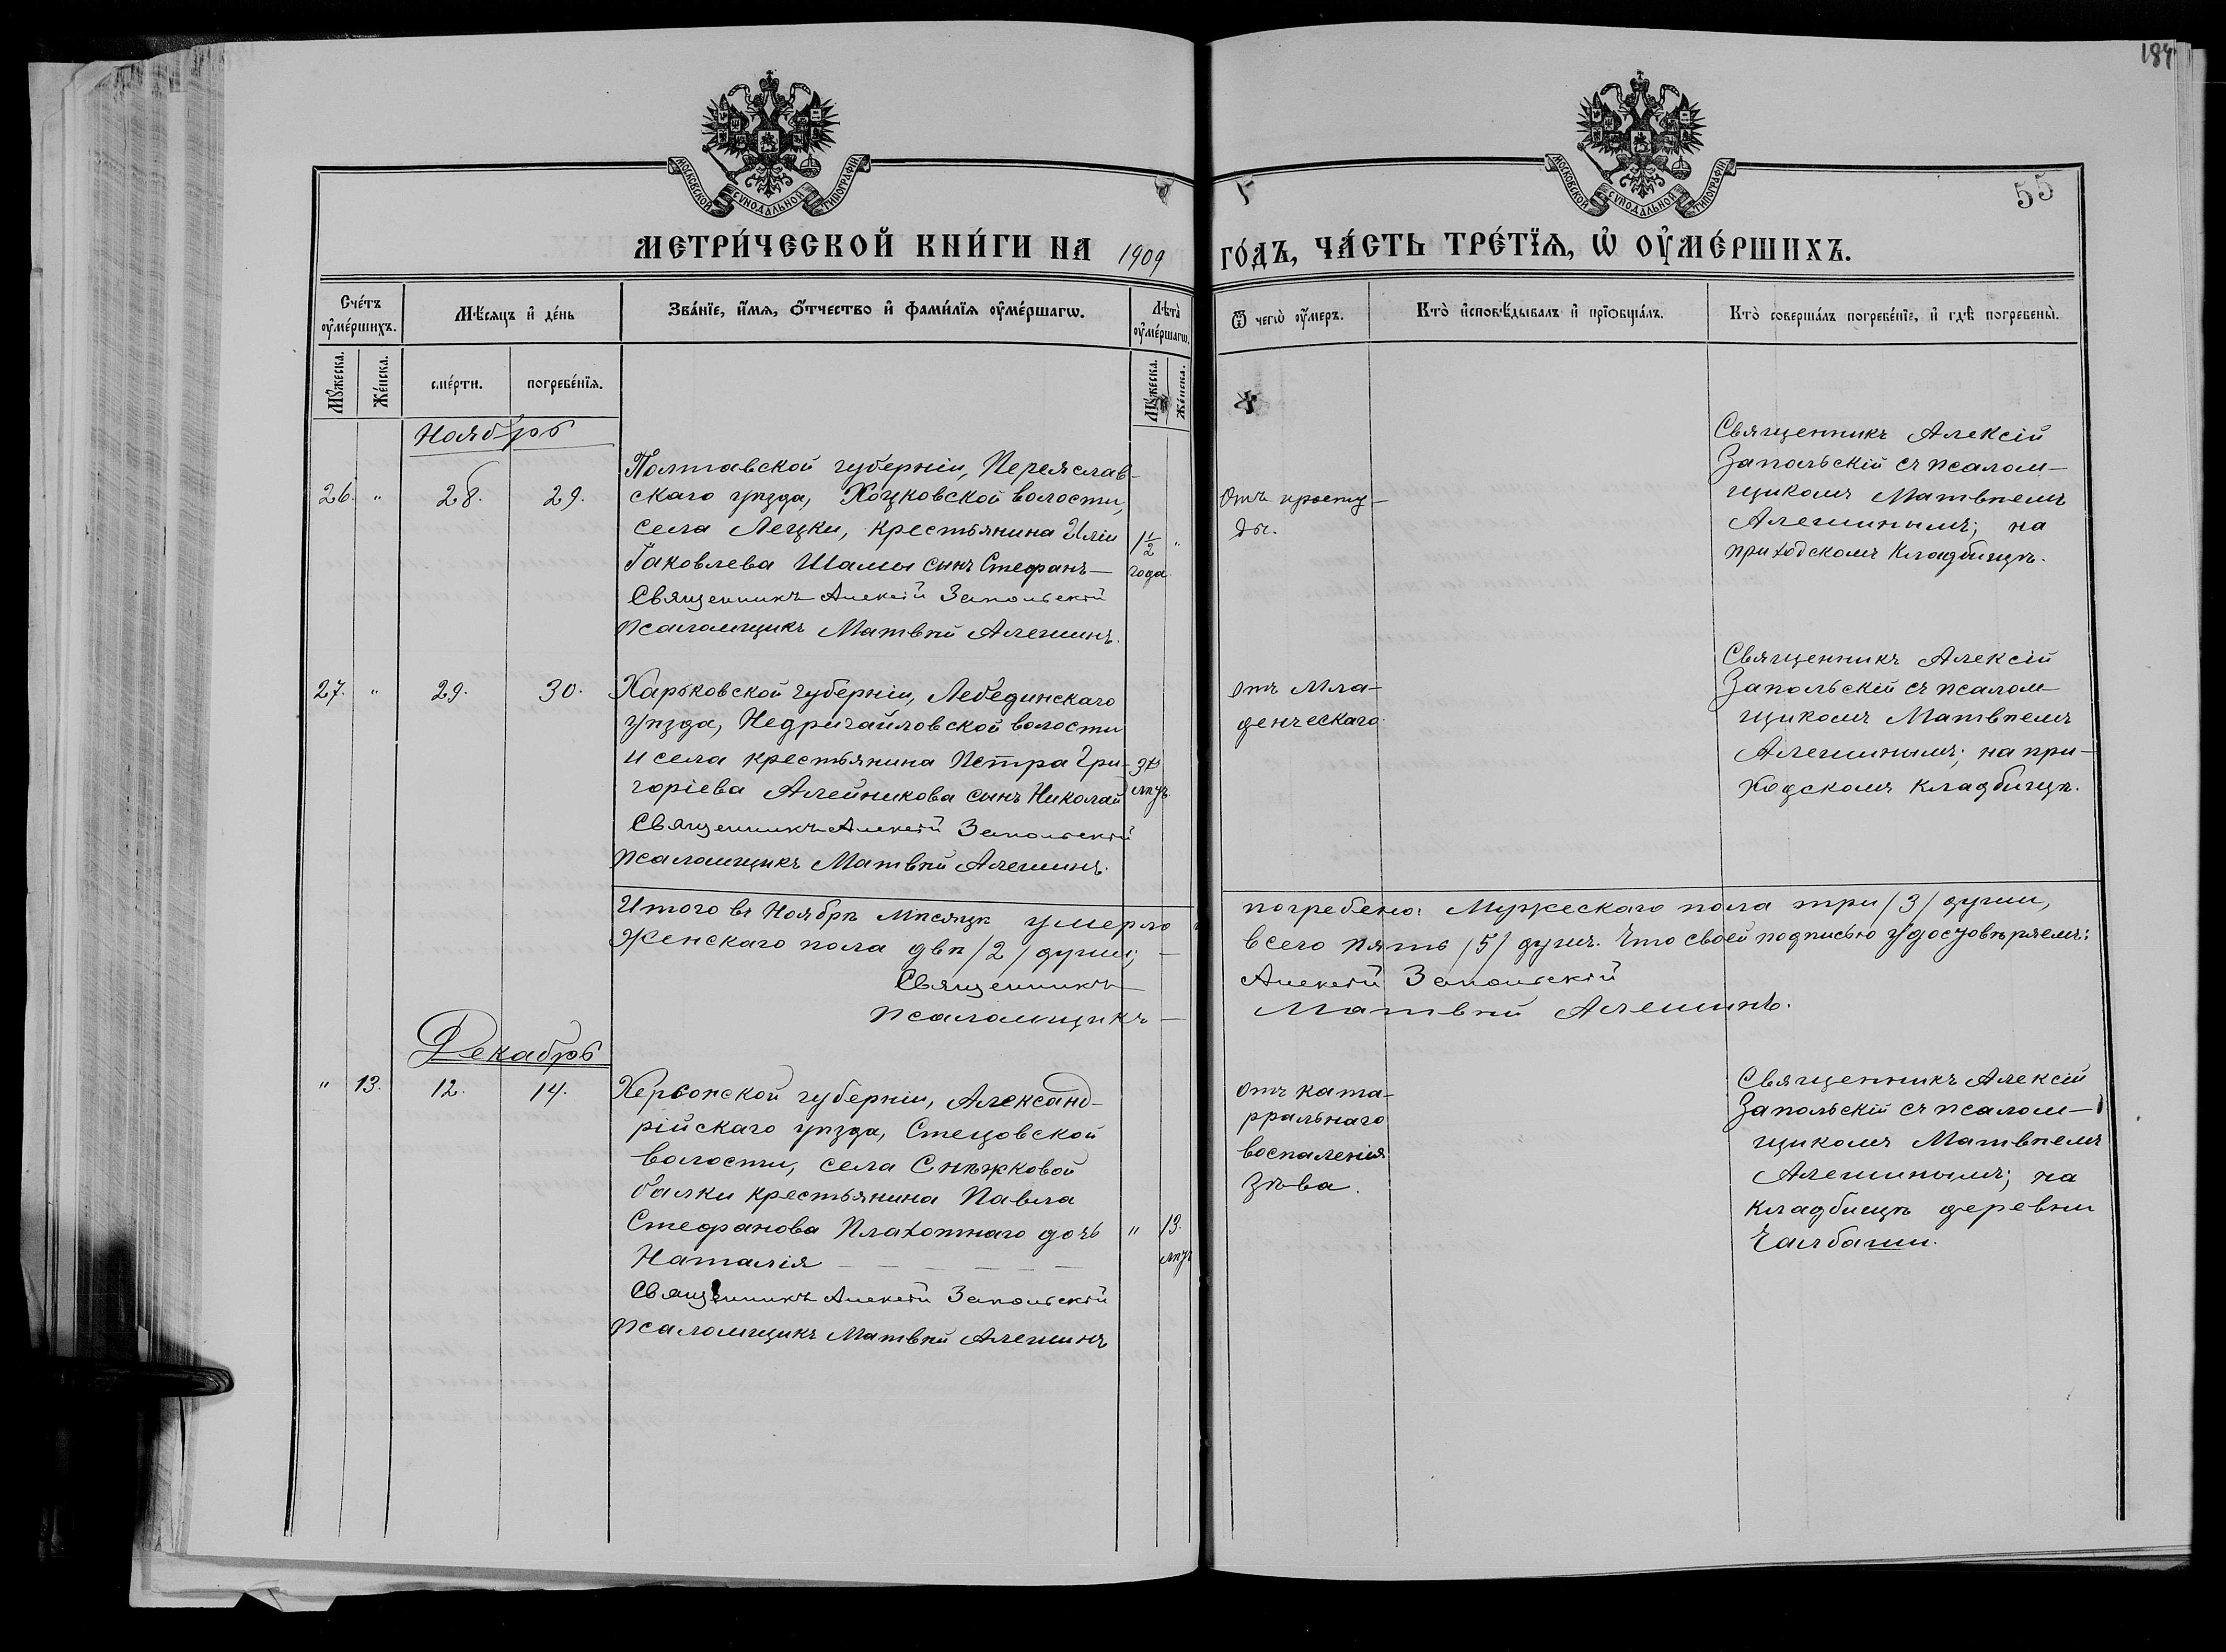 184
МОСКОВСКОЙ СѴНОДАЛЬНОЙ ТИПОГРАФІИ
МОСКОВСКОЙ СѴНОДАЛЬНОЙ ТИПОГРАФІИ
55
МЕТРИ́ЧЕСКОЙ КНИ́ГИ НА 1909 ГО́ДЪ, ЧА́СТЬ ТРЕ́ТЇѦ, Ѡ҆ ОУ҆МЕ́РШИХЪ.
Сче́тъ оу҆ме́ршихъ.
Мѣ́сяцъ и҆ де́нь
Зва́нїе, и҆́мѧ, ѻ҆́тчество и҆ фами́лїѧ оу҆ме́ршагѡ.
Лѣта̀ оу҆ме́ршагѡ.
Ѿ чегѡ̀ оу҆́меръ.
Кто̀ и҆сповѣ́дывалъ и҆ прїѻбща́лъ.
Кто̀ соверша́лъ погребе́нїе, и҆ гдѣ̀ погребены̀.
Мꙋ́жеска.
Же́нска.
сме́рти.
погребе́нїѧ.
Мꙋ́жеска.
Же́нска.
Ноябрь
26. " 28. 29.
Полтавской губерніи, Переяслав-
скаго уѣзда, Хоцковской волости,
села Лецки, крестьянина Иліи
Іаковлева Шамы сынъ Стефанъ —
Священникъ Алексій Запольскій
Псаломщикъ Матвѣй Алешинъ.
1 1/2 "
года
Отъ просту-
ды.
Священникъ Алексій
Запольскій съ псалом-
щикомъ Матвѣемъ
Алешинымъ; на
приходскомъ кладбищѣ.
27. " 29. 30.
Харьковской губерніи, Лебединскаго
уѣзда, Недригайловской волости
и села крестьянина Петра Гри-
горіева Алейникова сынъ Николай
Священникъ Алексій Запольскій
Псаломщикъ Матвѣй Алешинъ.
мѣц.
отъ мла-
денческаго
Священникъ Алексій
Запольскій съ псалом-
щикомъ Матвѣемъ
Алешинымъ; на при-
ходскомъ кладбищѣ.
Итого въ Ноябрѣ мѣсяцѣ умерло и погребено: Мужескаго пола три /3/ души,
Женскаго пола двѣ /2/ души; — всего пять /5/ душъ. Что своей подписью удостовѣряемъ:
Священникъ — Алексій Запольскій
Псаломщикъ — Матвѣй Алешинъ.
Декабрь
" 13. 12. 14.
Херсонской губерніи, Александ-
рійскаго уѣзда, Стецовской
волости, села Снѣжковой
балки крестьянина Павла
Стефанова Плахотнаго дочь
Наталія
Священникъ Алексій Запольскій
Псаломщикъ Матвѣй Алешинъ
" 13.
мѣц.
отъ ката-
рральнаго
воспаленія
зѣва.
Священникъ Алексій
Запольскій съ псалом-
щикомъ Матвѣемъ
Алешинымъ; на
кладбищѣ деревни
Чалбаши.